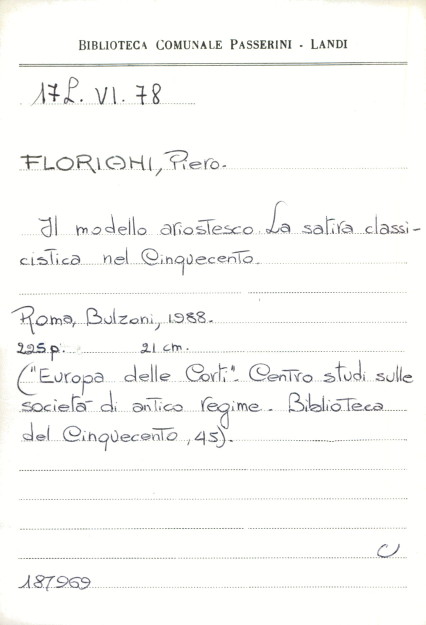 BIBLIOTECA COMUNALE PASSERINI - LANDI
17L. VI. 78
FLORIANI, Piero.
Il modello ariostesco. La satira classi-
cistica nel Cinquecento.
Roma, Bulzoni, 1988.
225 p. 21 cm.
("Europa delle Corti". Centro studi sulle
società di antico regime. Biblioteca
del Cinquecento, 45).
U
187969